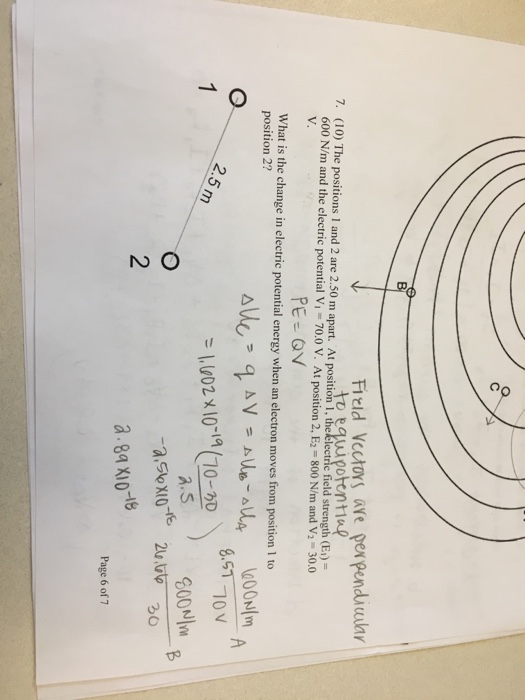 C
B
Field vectors are perpendicular
to equipotential
7. (10) The positions 1 and 2 are 2.50 m apart. At position 1, the electric field strength (E₁) =
600 N/m and the electric potential V₁ = 70.0 V. At position 2, E₂ = 800 N/m and V₂ = 30.0
V.
PE = QV
What is the change in electric potential energy when an electron moves from position 1 to
position 2?
1
2.5 m
2
ΔUe = q ΔV = ΔUB - ΔUA
= 1.602 X10-19 (70-30)
2.5
-2.56X10-18
2.89X10-18
600N/m A
8.57 70V
800N/m B
26.66 30
Page 6 of 7